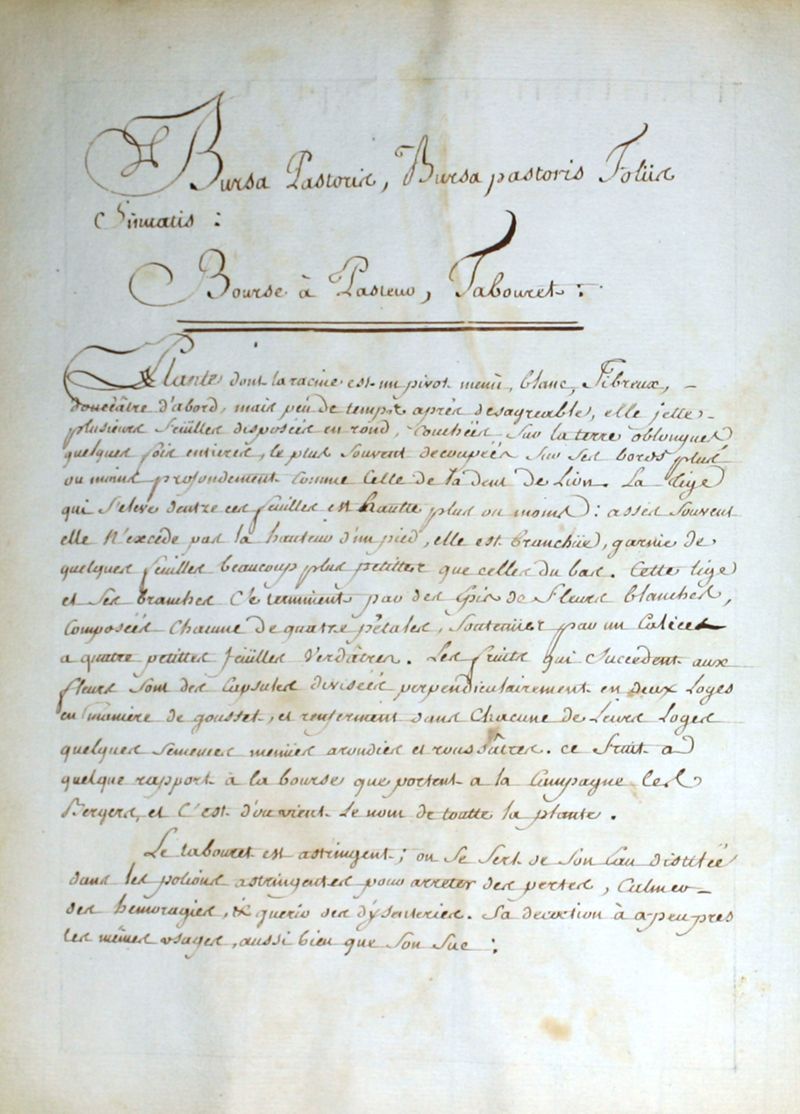 Bursa Pastoris, Bursa pastoris Foliis
Sinuatis :
Bourse à Pasteur, Tabouret :
Plante dont la racine est un pivot menü, blanc, Fibreux, –
doucâtre d'abord, mais peu de temps après desagreable, elle jette –
plusieurs feüilles disposées en rond, couchées sur la terre oblongues
quelques fois entieres, le plus souvent decoupées sur ses bords plus
ou moins profondement comme celle de la dent de Lion. La tige
qui s'eleve dentre ces feuilles est hautte plus ou moins : assés souvent
elle n'excede pas la hauteur d'un pied, elle est branchüe, garnie de
quelques feuilles beaucoup plus petittes que celles du bas. Cette tige
et ses branches c'e terminent par des Epis de fleurs blanches,
composées chacune de quatre pétales, soutenües par un Calice
a quatre petittes feüilles verdâtres. Les fruits qui succedent aux
fleurs sont des capsules divisées perpendiculairement en deux Loges
en maniere de gousset, et renferment dans chacune de Leurs Loges
quelques semences menües arondies et roussâtres. ce fruit a
quelque rapport à la bourse que portent a la Campagne les
Bergers, et c'est d'ou vient le nom de toutte la plante .
Le tabouret est astringent ; on se sert de son Eau distilée
dans les potions astringentes pour arreter des pertes, Calmer –
des hemoragies, & querir des dysenteries. Sa decoction à apeupres
les mêmes usages, aussi bien que son suc :